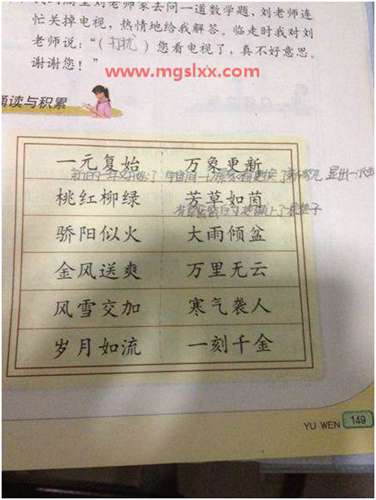 刘老师家去问一道数学题,刘老师连
忙关掉电视,热情地给我解答。临走时我对刘
老师说:“(打扰)您看电视了,真不好意思。
谢谢您!”
www.mgslxx.com
诵读与积累
一元复始 万象更新
桃红柳绿 芳草如茵
骄阳似火 大雨倾盆
金风送爽 万里无云
风雪交加 寒气袭人
岁月如流 一刻千金
YU WEN 149